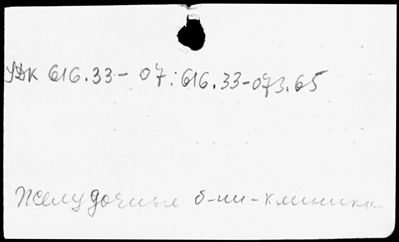 УДК 616.33-07:616.33-073.65
Желудочные б-ни-клиника